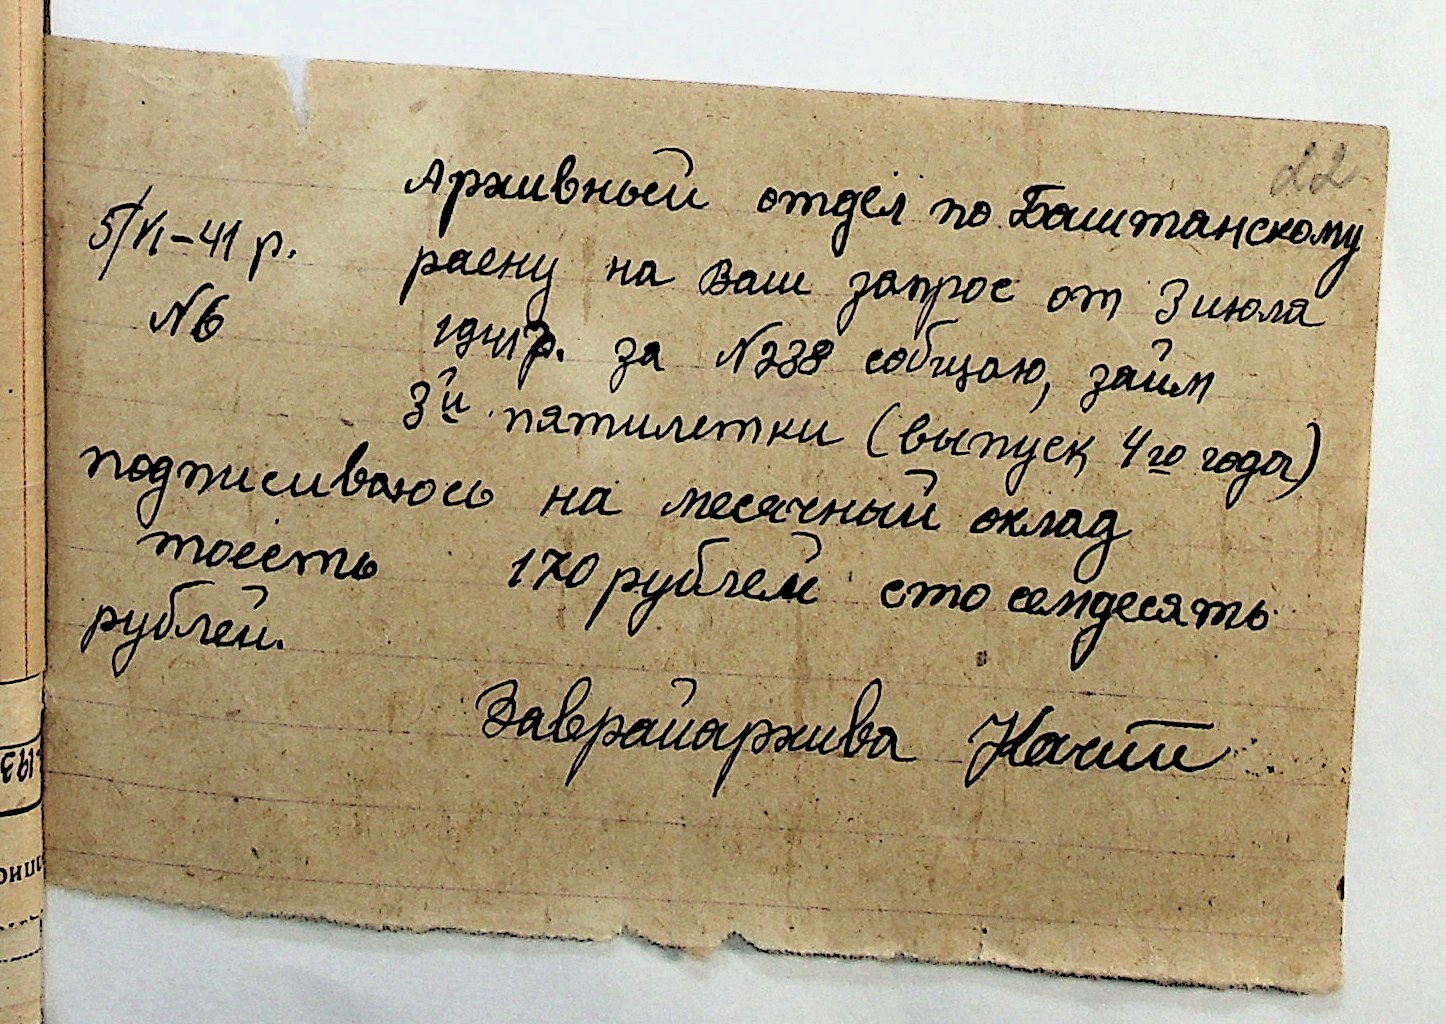 22
Архивный отдел по Баштанскому
5/VI-41 р.
раену на ваш запрос от 3 июля
№6
1941 р. за №238 собщаю, займ
3й пятилетки (выпуск 4го года)
подписиваюсь на месячный оклад
тоесть 170 рублей сто семдесять
рублей.
Заврайархива